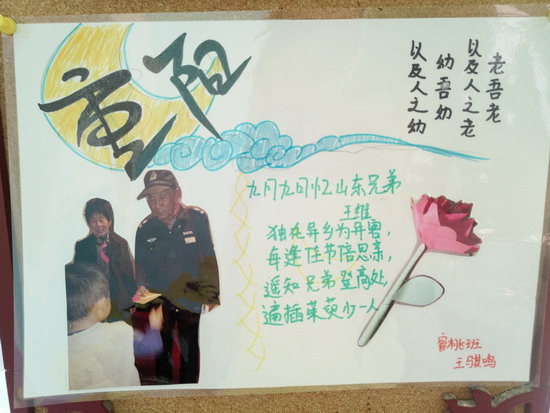 重阳
老吾老
以及人之老
幼吾幼
以及人之幼
九月九日忆山东兄弟
王维
独在异乡为异客,
每逢佳节倍思亲,
遥知兄弟登高处,
遍插茱萸少一人
蜜桃班
王骐鸣